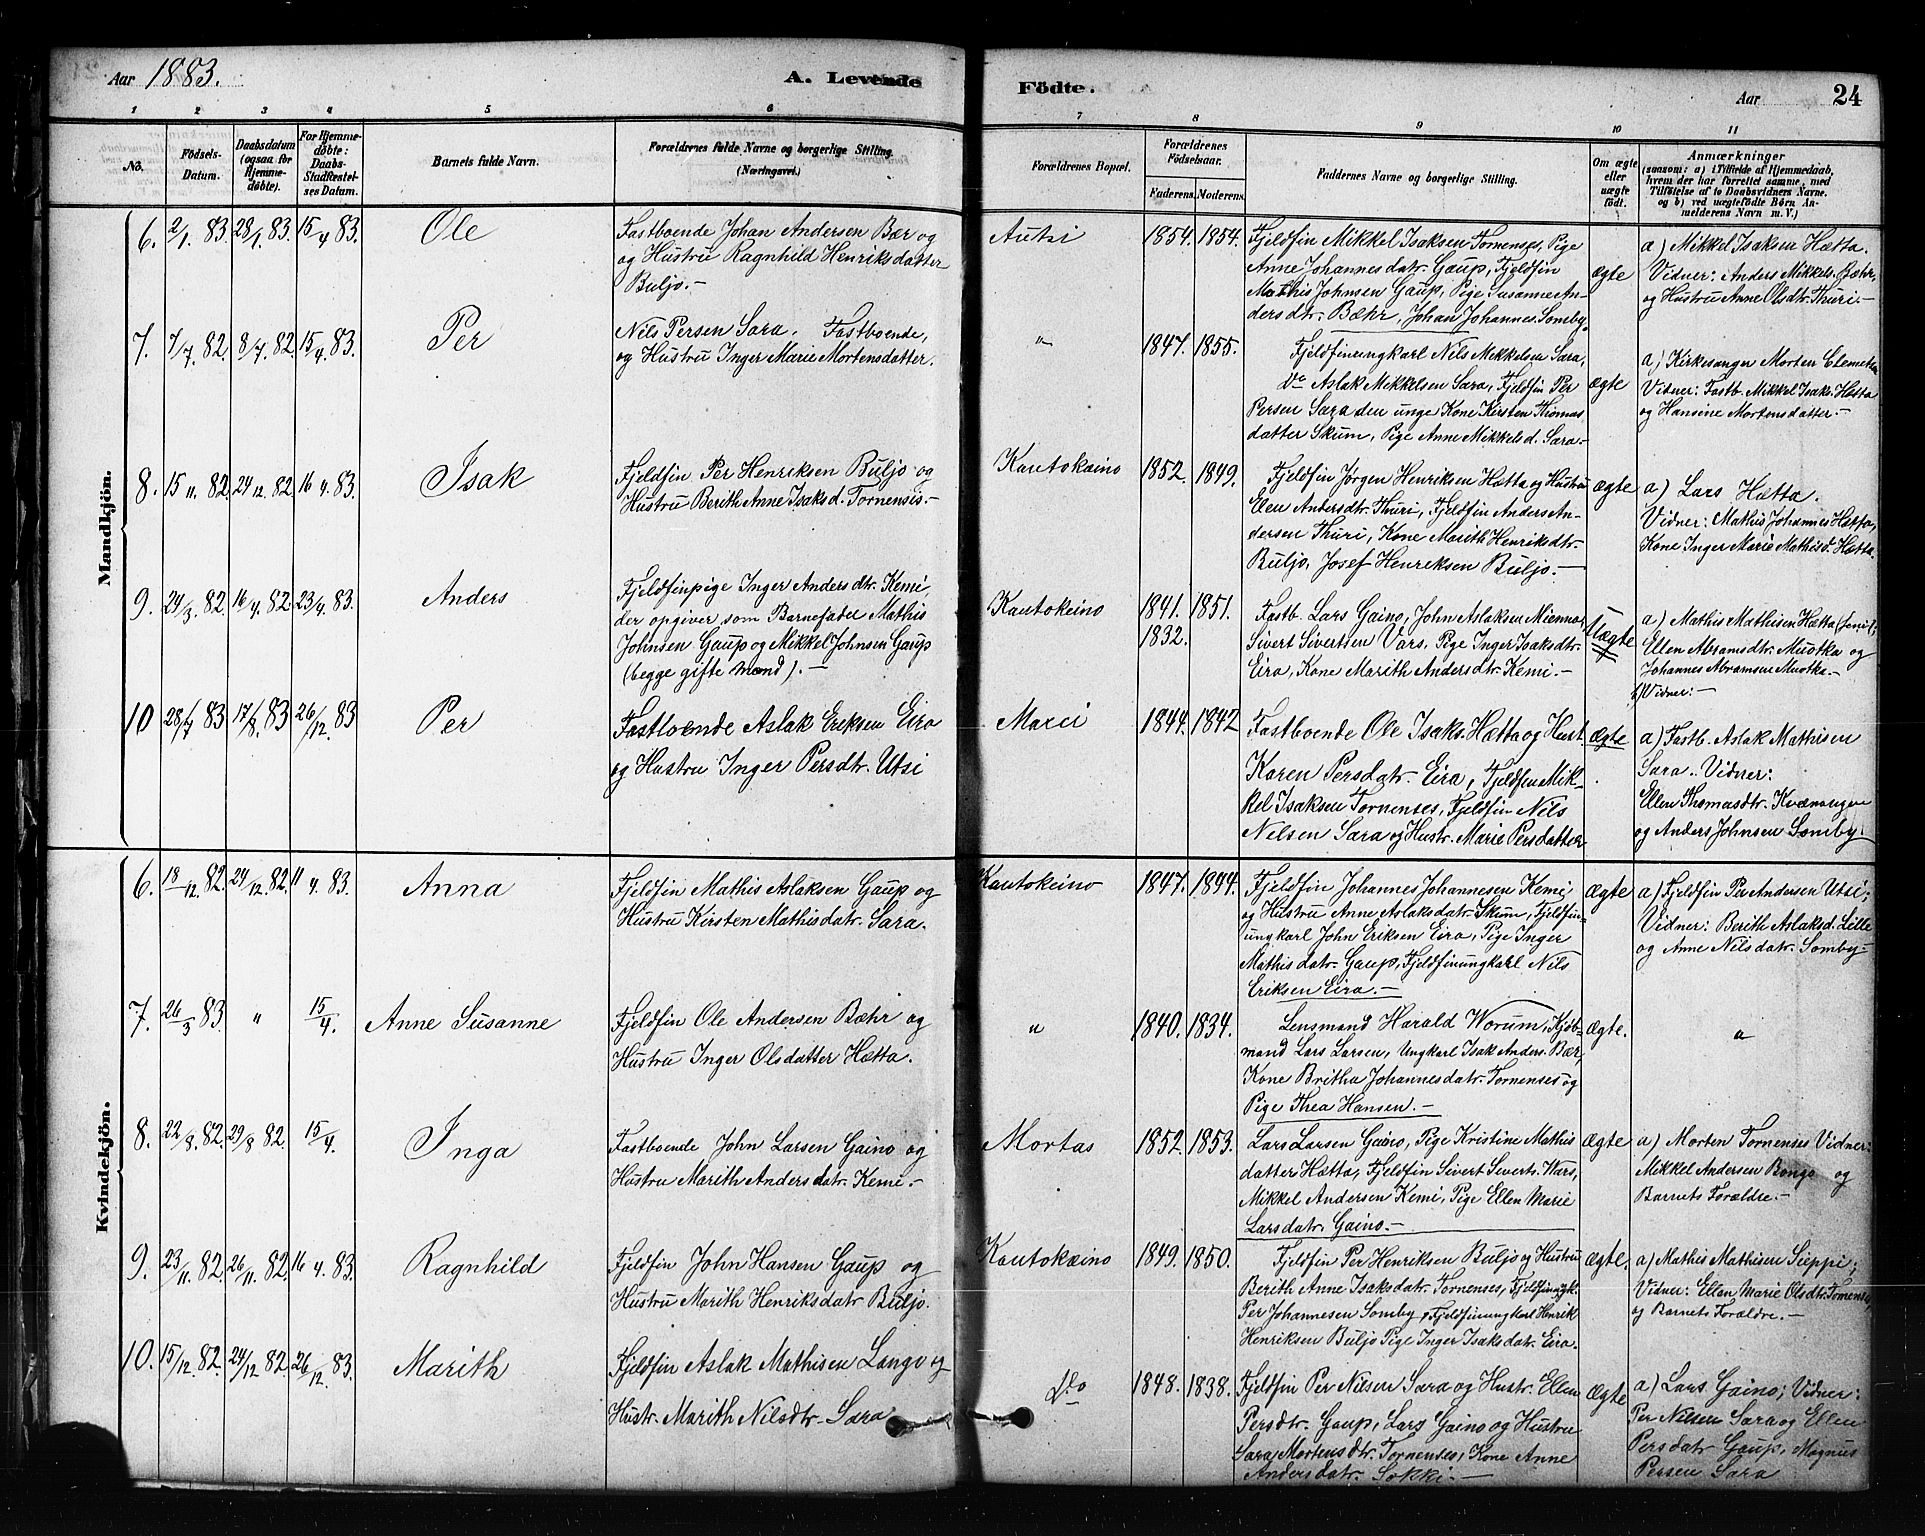 Aar 1883.
A. Levende
Födte.
Aar
24
1 2 3 4 5 6 7 8 9 10 11
No.
Födsels-
Datum.
Daabsdatum
(ogsaa for
Hjemme-
döbte).
For Hjemme-
döbte:
Daabs-
Stadfæstel-
ses Datum.
Barnets fulde Navn.
Forældrenes fulde Navne og borgerlige Stilling.
(Næringsvei.)
Forældrenes Bopæl.
Forældrenes
Födselsaar.
Faderens. Moderens.
Faddernes Navne og borgerlige Stilling.
Om ægte
eller
uægte
födt.
Anmærkninger
(saasom: a) i Tilfælde af Hjemmedaab,
hvem der har forrettet samme, med
Tilföielse af to Daabsvidners Navne.
og b) ved uægtefödte Börn An-
melderens Navn m. V.)
Mandkjön.
6. 2/1. 83. 28/1. 83. 15/4 83. Ole
Fastboende Johan Andersen Bær og
og Hustru Ragnhild Henriksdatter
Buljo.-
Autsi 1854. 1854.
Fjeldfin Mikkel Isaksen Tornenses, Pige
Anne Johannesdatr. Gaup, Fjeldfin
Mathis Johnsen Gaup, Pige Susanne An-
dersdtr. Bæhr, Johan Johannes. Somby.
ægte
a) Mikkel Isaksen Hætta.
Vidner: Anders Mikkels. Bæhr,
og Hustru Anne Olsdtr. Thuri.-
7. 7/7. 82. 8/7. 82. 15/4. 83. Per
Nils Persen Sara. Fastboende,
og Hustru Inger Marie Mortensdatter.
" 1847. 1855.
Fjeldfinungkarl Nils Mikkelsen Sara,
Do Aslak Mikkelsen Sara, Fjeldfin Per
Persen Sara den unge Kone Kirsten Thomas
datter Skum, Pige Anne Mikkelsd. Sara.-
ægte
a) Kirkesanger Morten Clemetsen
Vidner: Fastb. Mikkel Isaks. Hætta
og Hansine Mortensdatter.-
8. 15/11. 82. 24/12. 82. 16/4. 83. Isak
Fjeldfin Per Henriksen Buljo og
Hustru Berith Anne Isaksd. Tornensis.-
Kautokæino 1852. 1849.
Fjeldfin Jørgen Henriksen Hætta og Hustru
Elen Antersdtr. Thuri, Fjeldfin Anders An-
dersen Thuri, Kone Marith Henriksdtr.
Buljo, Josef Henriksen Buljo.-
ægte
a) Lars Hætta.
Vidner: Mathis Johannes Hætta,
Kone Inger Marie Mathisd. Hætta.
9. 24/3. 82. 16/4. 82. 23/4. 83. Anders
Fjeldfinpige Inger Andersdtr. Kemi,
der opgiver som Barnefader Mathis
Johnsen Gaup og Mikkel Johnsen Gaup
(begge gifte mænd).-
Kautokeino 1841. 1851.
1832.
Fastb. Lars Gaino, John Aslaksen Mienna,
Sivert Sivertsen Vars, Pige Inger Isaksdtr.
Eira, Kone Marith Andersdtr. Kemi.-
Uægte
a) Mathis Mathisen Hætta (senr.);
Ellen Abramsdtr. Muotka og
Johannes Abramsen Muotka.-
b) Vidner:-
10 28/7 83 17/8. 83 26/12. 83 Per
Fastboende Aslak Eriksen Eira
og Hustru Inger Persdtr. Utsi
Marci 1844. 1842
Fastboende Ole Isaks. Hætta og Hust.
Karen Persdatr. Eira, Fjeldfin Mik-
kel Isaksen Tornenses, Fjeldfin Nils
Nilsen Sara og Hustr. Marie Persdatter
ægte
a) Fastb. Aslak Mathisen
Sara. Vidner:
Ellen Thomasdtr. Kvænanger
og Anders Johnsen Somby.
Kvindekjön.
6. 18/12. 82. 24/12. 82. 11/4. 83. Anna
Fjeldfin Mathis Aslaksen Gaup og
Hustru Kirsten Mathisdatr. Sara.
Kautokeino 1847. 1844.
Fjeldfin Johannes Johannesen Kemi
og Hustru Anne Aslaksdatr. Skum, Fjeldfin-
ungkarl John Eriksen Eira, Pige Inger
Mathisdatr. Gaup, Fjeldfinungkarl Nils
Eriksen Eira.-
ægte
a) Fjeldfin Per Andersen Utsi;
Vidner: Berith Aslaksd. Lille
og Anne Nilsdatr. Somby.-
7. 26/3 83. " 15/4. Anne Susanne
Fjeldfin Ole Andersen Bæhr og
Hustru Inger Olsdatter Hætta.
" 1840. 1834.
Lensmand Harald Worum, Kjøb-
mand Lars Larsen, Ungkarl Isak Anders. Bær,
Kone Britha Johannesdatr. Tornenses og
Pige Thea Hansen.-
ægte.
"
8. 22/8. 82. 29/8 82. 15/4. Inga
Fastboende John Larsen Gaino og
Hustru Marith Andersdatr. Kemi.-
Mortas 1852. 1853.
Lars Larsen Gaino, Pige Kristine Mathis
datter Hætta, Fjeldfin Sivert Siverts. Wars,
Mikkel Andersen Kemi, Pige Ellen Marie
Larsdatr. Gaino.-
ægte
a) Morten Tornenses Vidner:
Mikkel Andersen Bongo og
Barnets Forældre.-
9. 23/11. 82. 26/11. 82. 16/4. 83. Ragnhild
Fjeldfin John Hansen Gaup og
Hustru Marith Henriksdatr. Buljo.
Kautokæino 1849. 1850.
Fjeldfin Per Henriksen Buljo og Hustru
Berith Anne Isaksdatr. Tornenses, Fjeldfinungk.
Per Johannesen Somby, Fjeldfinungkarl Henrik
Henriksen Buljo Pige Inger Isaksdatr. Eira.
ægte.
a) Mathis Mathisen Sieppi;
Vidner: Ellen Marie Olsdtr. Tornenses,
og Barnets Forældre.-
10. 15/12. 82. 24/12 82. 26/12. 83. Marith
Fjeldfin Aslak Mathisen Lango og
Hustr. Marith Nilsdtr. Sara
Do 1848. 1838.
Fjeldfin Per Nilsen Sara og Hustr. Ellen
Persdtr. Gaup, Lars Gaino og Hustru
Sara Mortensdtr. Tornenses, Kone Anne
Andersdatr. Sokki.-
ægte
a) Lars Gaino; Vidner:
Per Nilsen Sara og Ellen
Persdatr Gaup, Magnus
Persen Sara